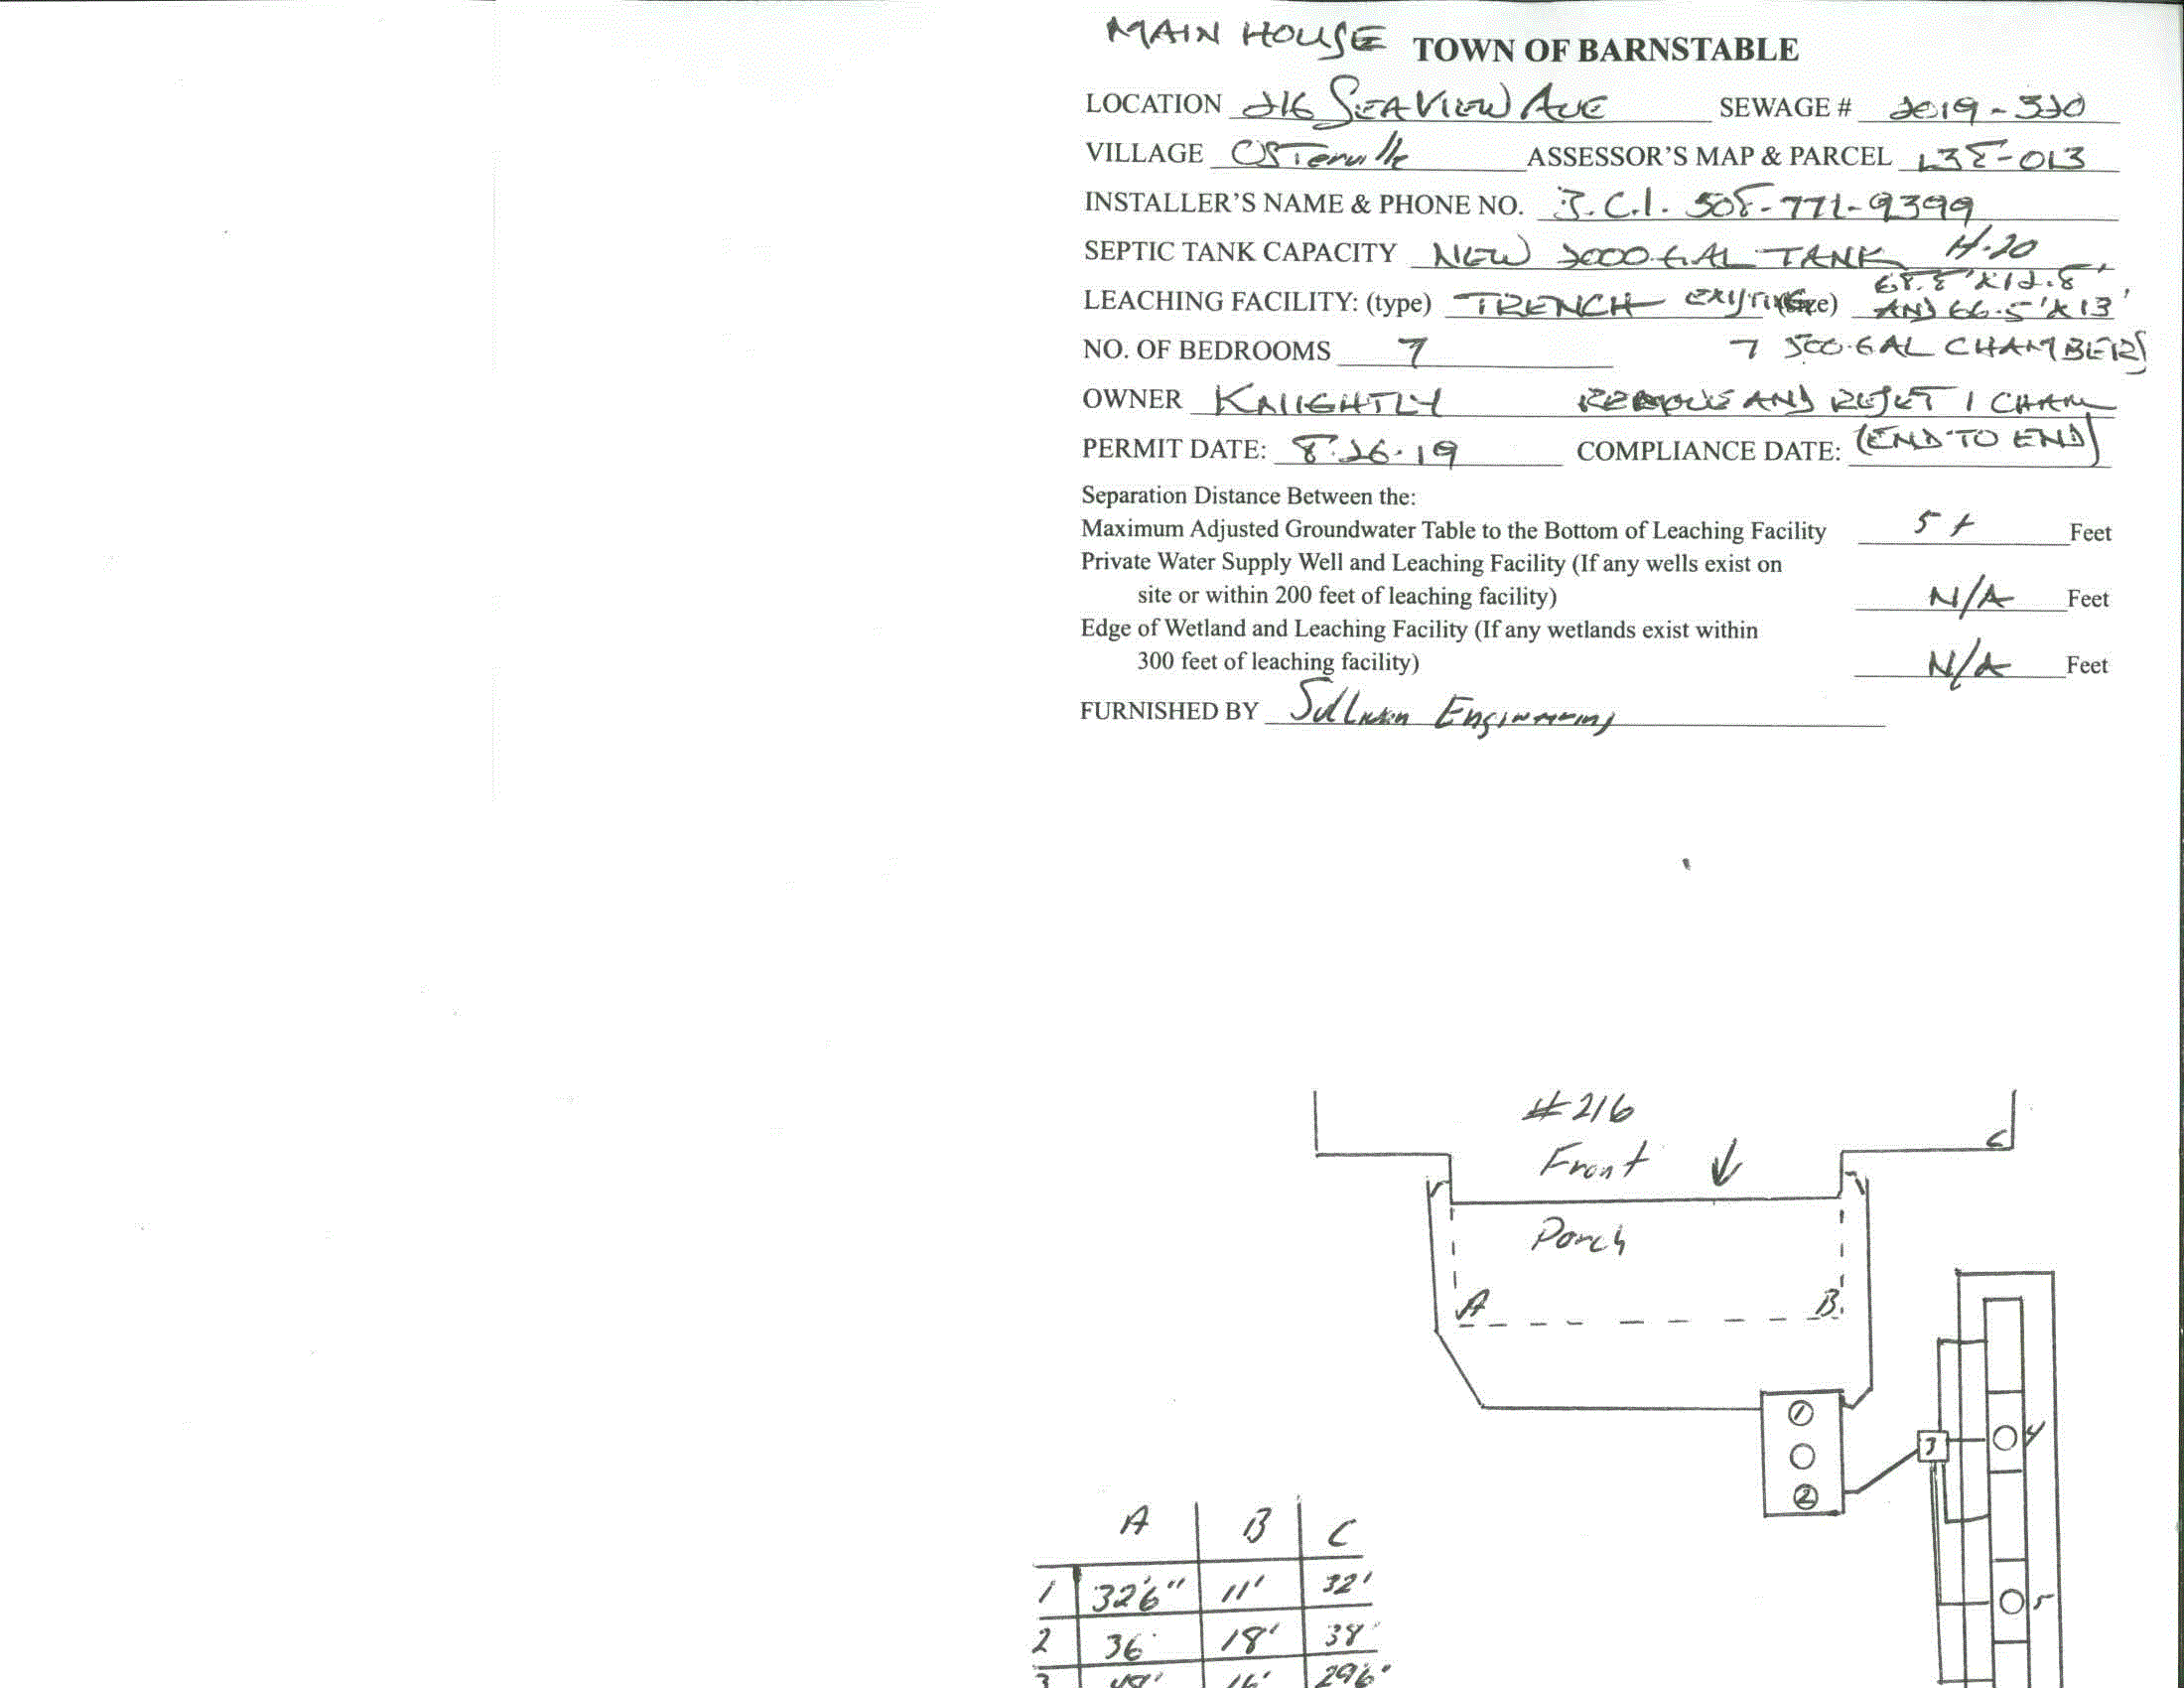 MAIN HOUSE TOWN OF BARNSTABLE
LOCATION 216 SEA VIEW AVE SEWAGE # 2019-320
VILLAGE OSTerville ASSESSOR'S MAP & PARCEL 138-013
INSTALLER'S NAME & PHONE NO. J.C.I. 508-771-9399
SEPTIC TANK CAPACITY NEW 2000-GAL TANK H-20
LEACHING FACILITY: (type) TRENCH EXISTING (size) 68.8'X12.8', AND 66.5'X13'
NO. OF BEDROOMS 7 7 500-GAL CHAMBERS
OWNER KNIGHTLY REMOVE AND RESET 1 CHAM
PERMIT DATE: 8.26.19 COMPLIANCE DATE: (END TO END)
Separation Distance Between the:
Maximum Adjusted Groundwater Table to the Bottom of Leaching Facility 5+ Feet
Private Water Supply Well and Leaching Facility (If any wells exist on
site or within 200 feet of leaching facility) N/A Feet
Edge of Wetland and Leaching Facility (If any wetlands exist within
300 feet of leaching facility) N/A Feet
FURNISHED BY Sullivan Engineering
#216
C
Front
Porch
A B
1
3 4
2
A B C
1 32'6" 11' 32'
5
2 36' 18' 38'
3 16' 29'6"